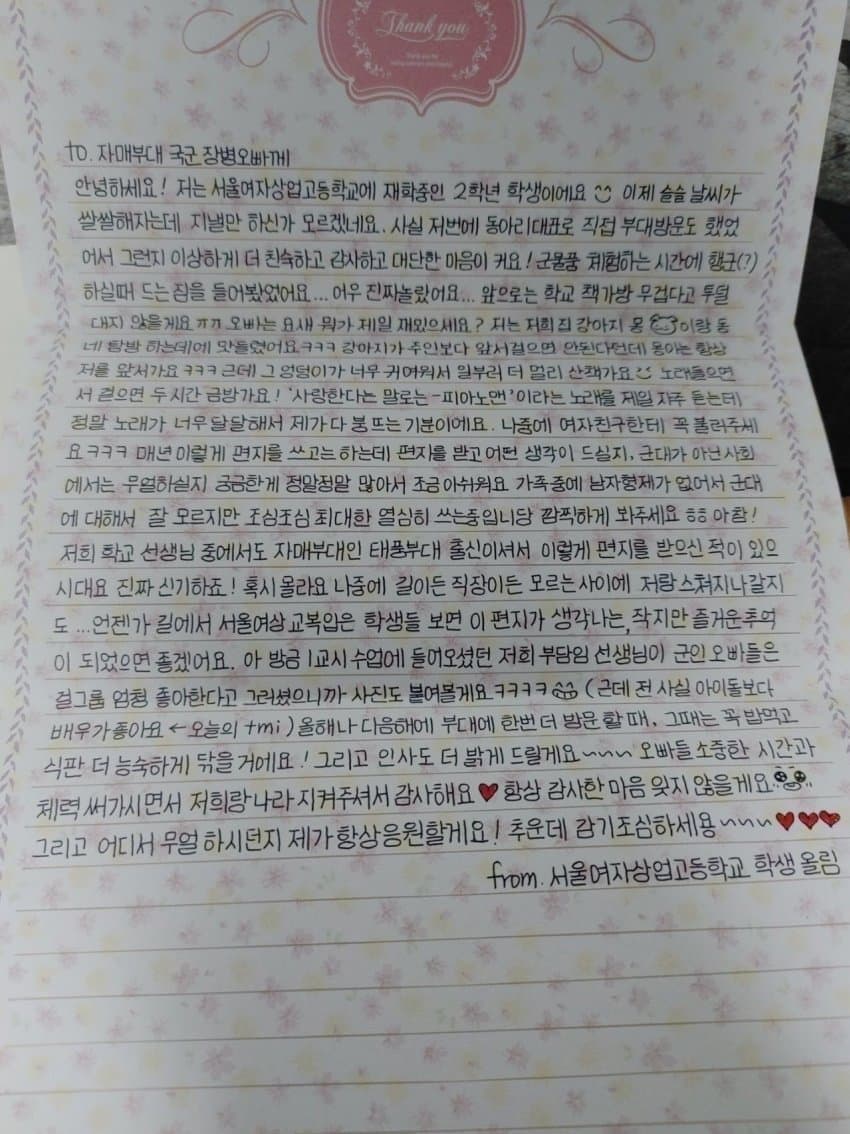 Thank you
to. 자매부대 국군 장병오빠께
안녕하세요! 저는 서울여자상업고등학교에 재학중인 2학년 학생이에요 이제 슬슬 날씨가
쌀쌀해지는데 지낼만 하신가 모르겠네요. 사실 저번에 동아리대표로 직접 부대방문도 했었
어서 그런지 이상하게 더 친숙하고 감사하고 대단한 마음이 커요! 군물품 체험하는 시간에 행군(?)
하실때 드는 짐을 들어봤었어요... 어우 진짜놀랐어요... 앞으로는 학교 책가방 무겁다고 투덜
대지 않을게요ㅠㅠ 오빠는 요새 뭐가 제일 재밌으세요? 저는 저희집 강아지 몽이랑 동
네 탐방 하는데에 맛들렸어요ㅋㅋㅋ 강아지가 주인보다 앞서걸으면 안된다던데 몽이는 항상
저를 앞서가요ㅋㅋㅋ 근데 그 엉덩이가 너무 귀여워서 일부러 더 멀리 산책가요 노래들으면
서 걸으면 두시간 금방가요! '사랑한다는 말로는-피아노맨'이라는 노래를 제일 자주 듣는데
정말 노래가 너무 달달해서 제가 다 붕뜨는 기분이에요. 나중에 여자친구한테 꼭 불러주세
요ㅋㅋㅋ 매년 이렇게 편지를 쓰고는 하는데 편지를 받고 어떤 생각이 드실지, 군대가 아닌 사회
에서는 무얼하실지 궁금한게 정말정말 많아서 조금 아쉬워요 가족중에 남자형제가 없어서 군대
에 대해서 잘 모르지만 조심조심 최대한 열심히 쓰는중입니당 깜찍하게 봐주세요 ㅎㅎ 아참!
저희 학교 선생님 중에서도 자매부대인 태풍부대 출신이셔서 이렇게 편지를 받으신 적이 있으
시대요 진짜 신기하죠! 혹시 몰라요 나중에 길이든 직장이든 모르는사이에 저랑 스쳐지나갈지
도...언젠가 길에서 서울여상 교복입은 학생들 보면 이 편지가 생각나는, 작지만 즐거운추억
이 되었으면 좋겠어요. 아 방금 1교시 수업에 들어오셨던 저희 부담임 선생님이 군인 오빠들은
걸그룹 엄청 좋아한다고 그러셨으니까 사진도 붙여볼게요ㅋㅋㅋㅋ (근데 전 사실 아이돌보다
배우가좋아요 ← 오늘의 tmi) 올해나 다음해에 부대에 한번 더 방문 할 때, 그때는 꼭 밥먹고
식판 더 능숙하게 닦을 거에요! 그리고 인사도 더 밝게 드릴게요~~~ 오빠들 소중한 시간과
체력 써가시면서 저희랑 나라 지켜주셔서 감사해요♥ 항상 감사한 마음 잊지 않을게요
그리고 어디서 무얼 하시던지 제가 항상응원할게요! 추운데 감기조심하세용~~~♥♥♥
from. 서울여자상업고등학교 학생 올림